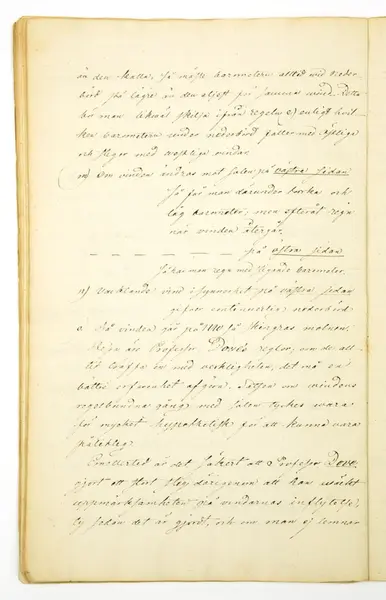 än den kalla, så måste barometern alltid vid neder-
börd stå lägre än den eljest för samma vind. Detta
bör man likväl skilja ifrån regeln e) enligt hvil-
ken barometern under nederbörd faller med östliga
och stiger med westliga vindar.
m) Om vinden ändras mot solen på västra sidan
så får man derunder torka och
låg barometer, men efteråt regn
när vinden återgår.
— — — — — — — på östra sidan
så har man regn med stigande barometer.
n) Vacklande vind i synnerhet på västra sidan
gifver continuerlig nederbörd.
o. Då vinden går på NO så skingras molnen.
Dessa äro Professor Dove's reglor, om de all-
tid träffa in med verkligheten, det må en
bättre erfarenhet afgöra. Satsen om windens
regelbundna gång med solen tyckes wara
för mycket hypothetisk för att kunna vara
pålitelig.
Emellertid är det säkert att Professor Dove
gjort ett stort steg derigenom att han wäckt
uppmärksamheten på vindarnas inflytelse,
ty sedan det är gjordt, och om man ej lemnar